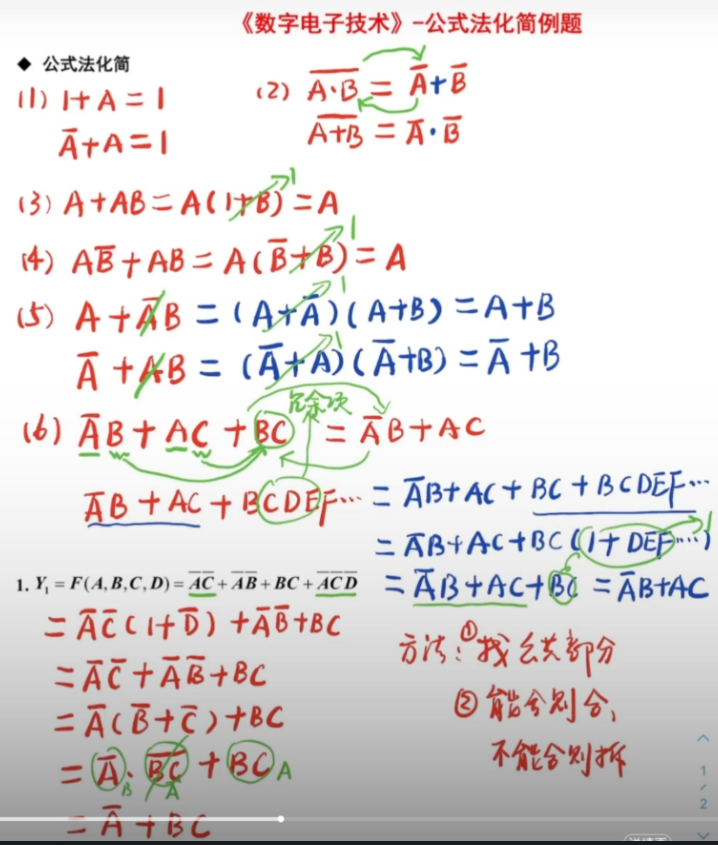 《数字电子技术》-公式法化简例题
◆ 公式法化简
(1) 1+A=1
A̅+A=1
(2) \overline{A·B} = A̅+B̅
\overline{A+B} = A̅·B̅
(3) A+AB=A(1+B)=A
1
(4) AB̅+AB=A(B̅+B)=A
1
(5) A+A̅B=(A+A̅)(A+B)=A+B
1
A̅+AB=(A̅+A)(A̅+B)=A̅+B
1
冗余项
(6) A̅B+AC+BC=A̅B+AC
A̅B+AC+BCDEF…=A̅B+AC+BC+BCDEF…
=A̅B+AC+BC(1+DEF…)
1
=A̅B+AC+BC=A̅B+AC
1. Y₁=F(A,B,C,D)=A̅C̅+A̅B̅+BC+A̅C̅D̅
=A̅C̅(1+D̅)+A̅B̅+BC
=A̅C̅+A̅B̅+BC
=A̅(B̅+C̅)+BC
=A̅·\overline{BC}+BC
B A A
=A̅+BC
方法:①找公共部分
②能合则合,
不能合则拆
1
/
2